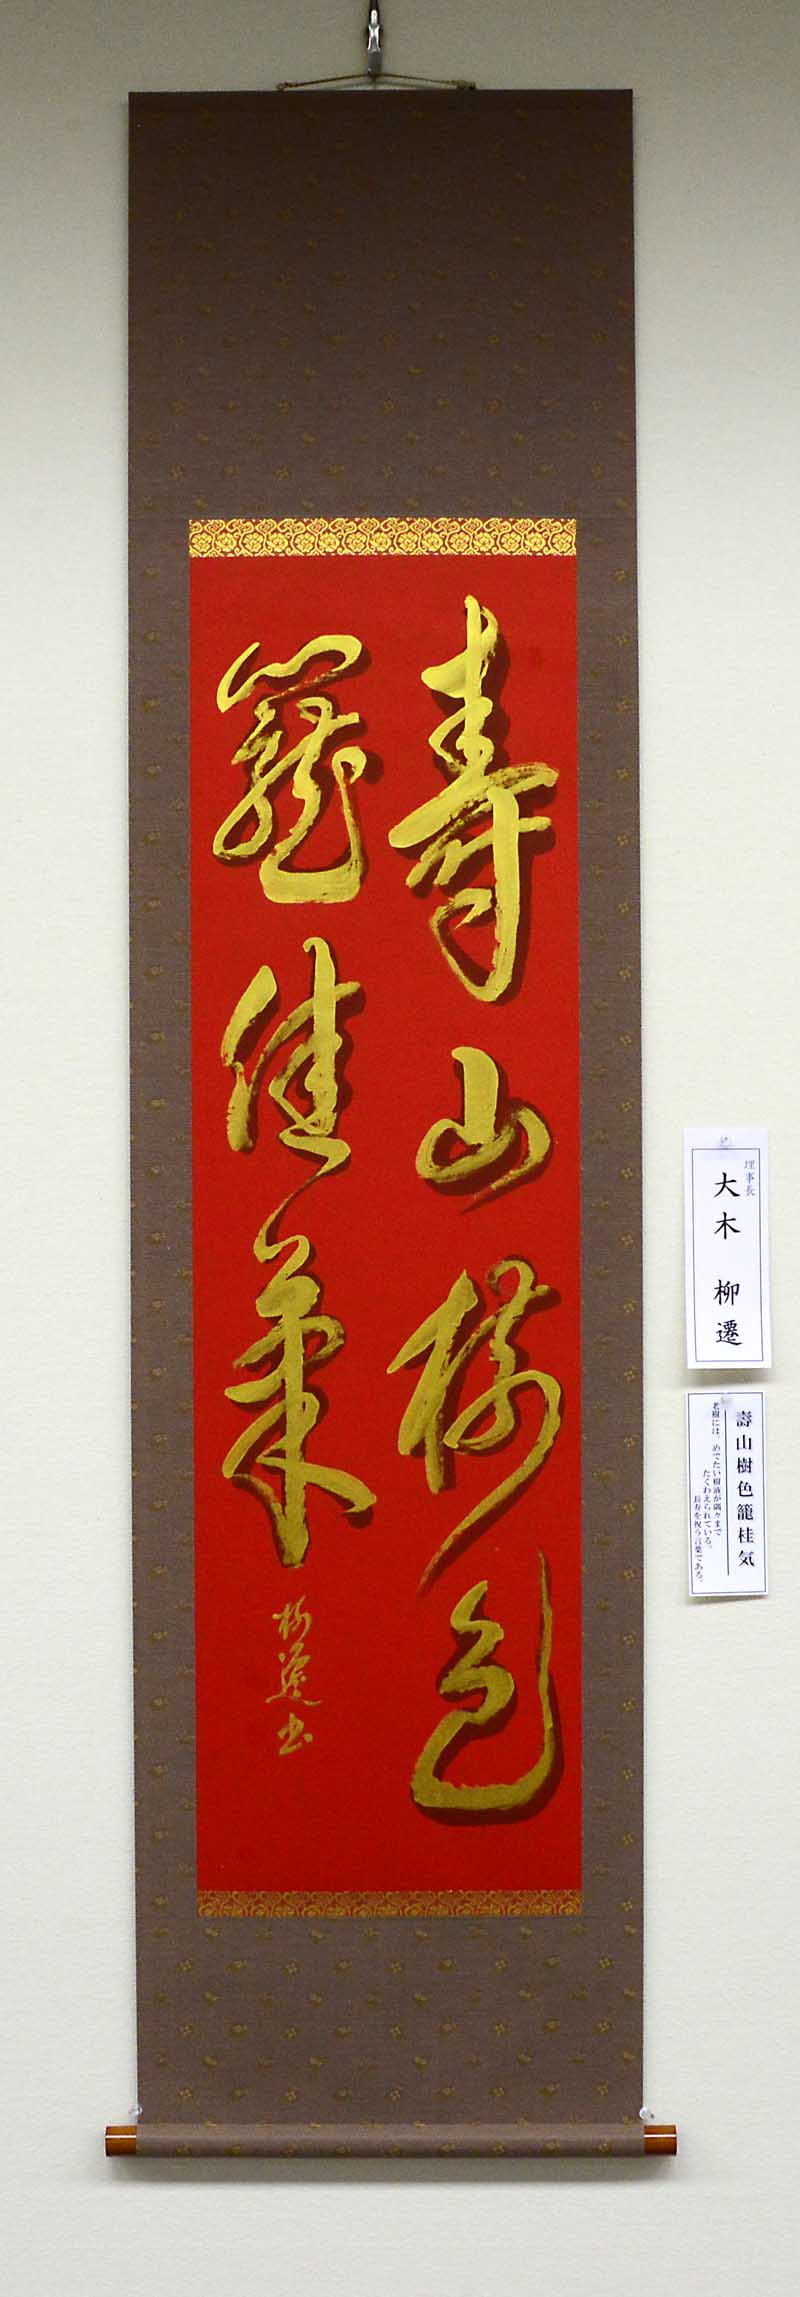 寿山樹色
籠佳氣
柳遷書
理事長
大木 柳遷
壽山樹色籠桂気
老樹には、めでたい樹液が隅々まで
たくわえられている。
長寿を祝う言葉である。